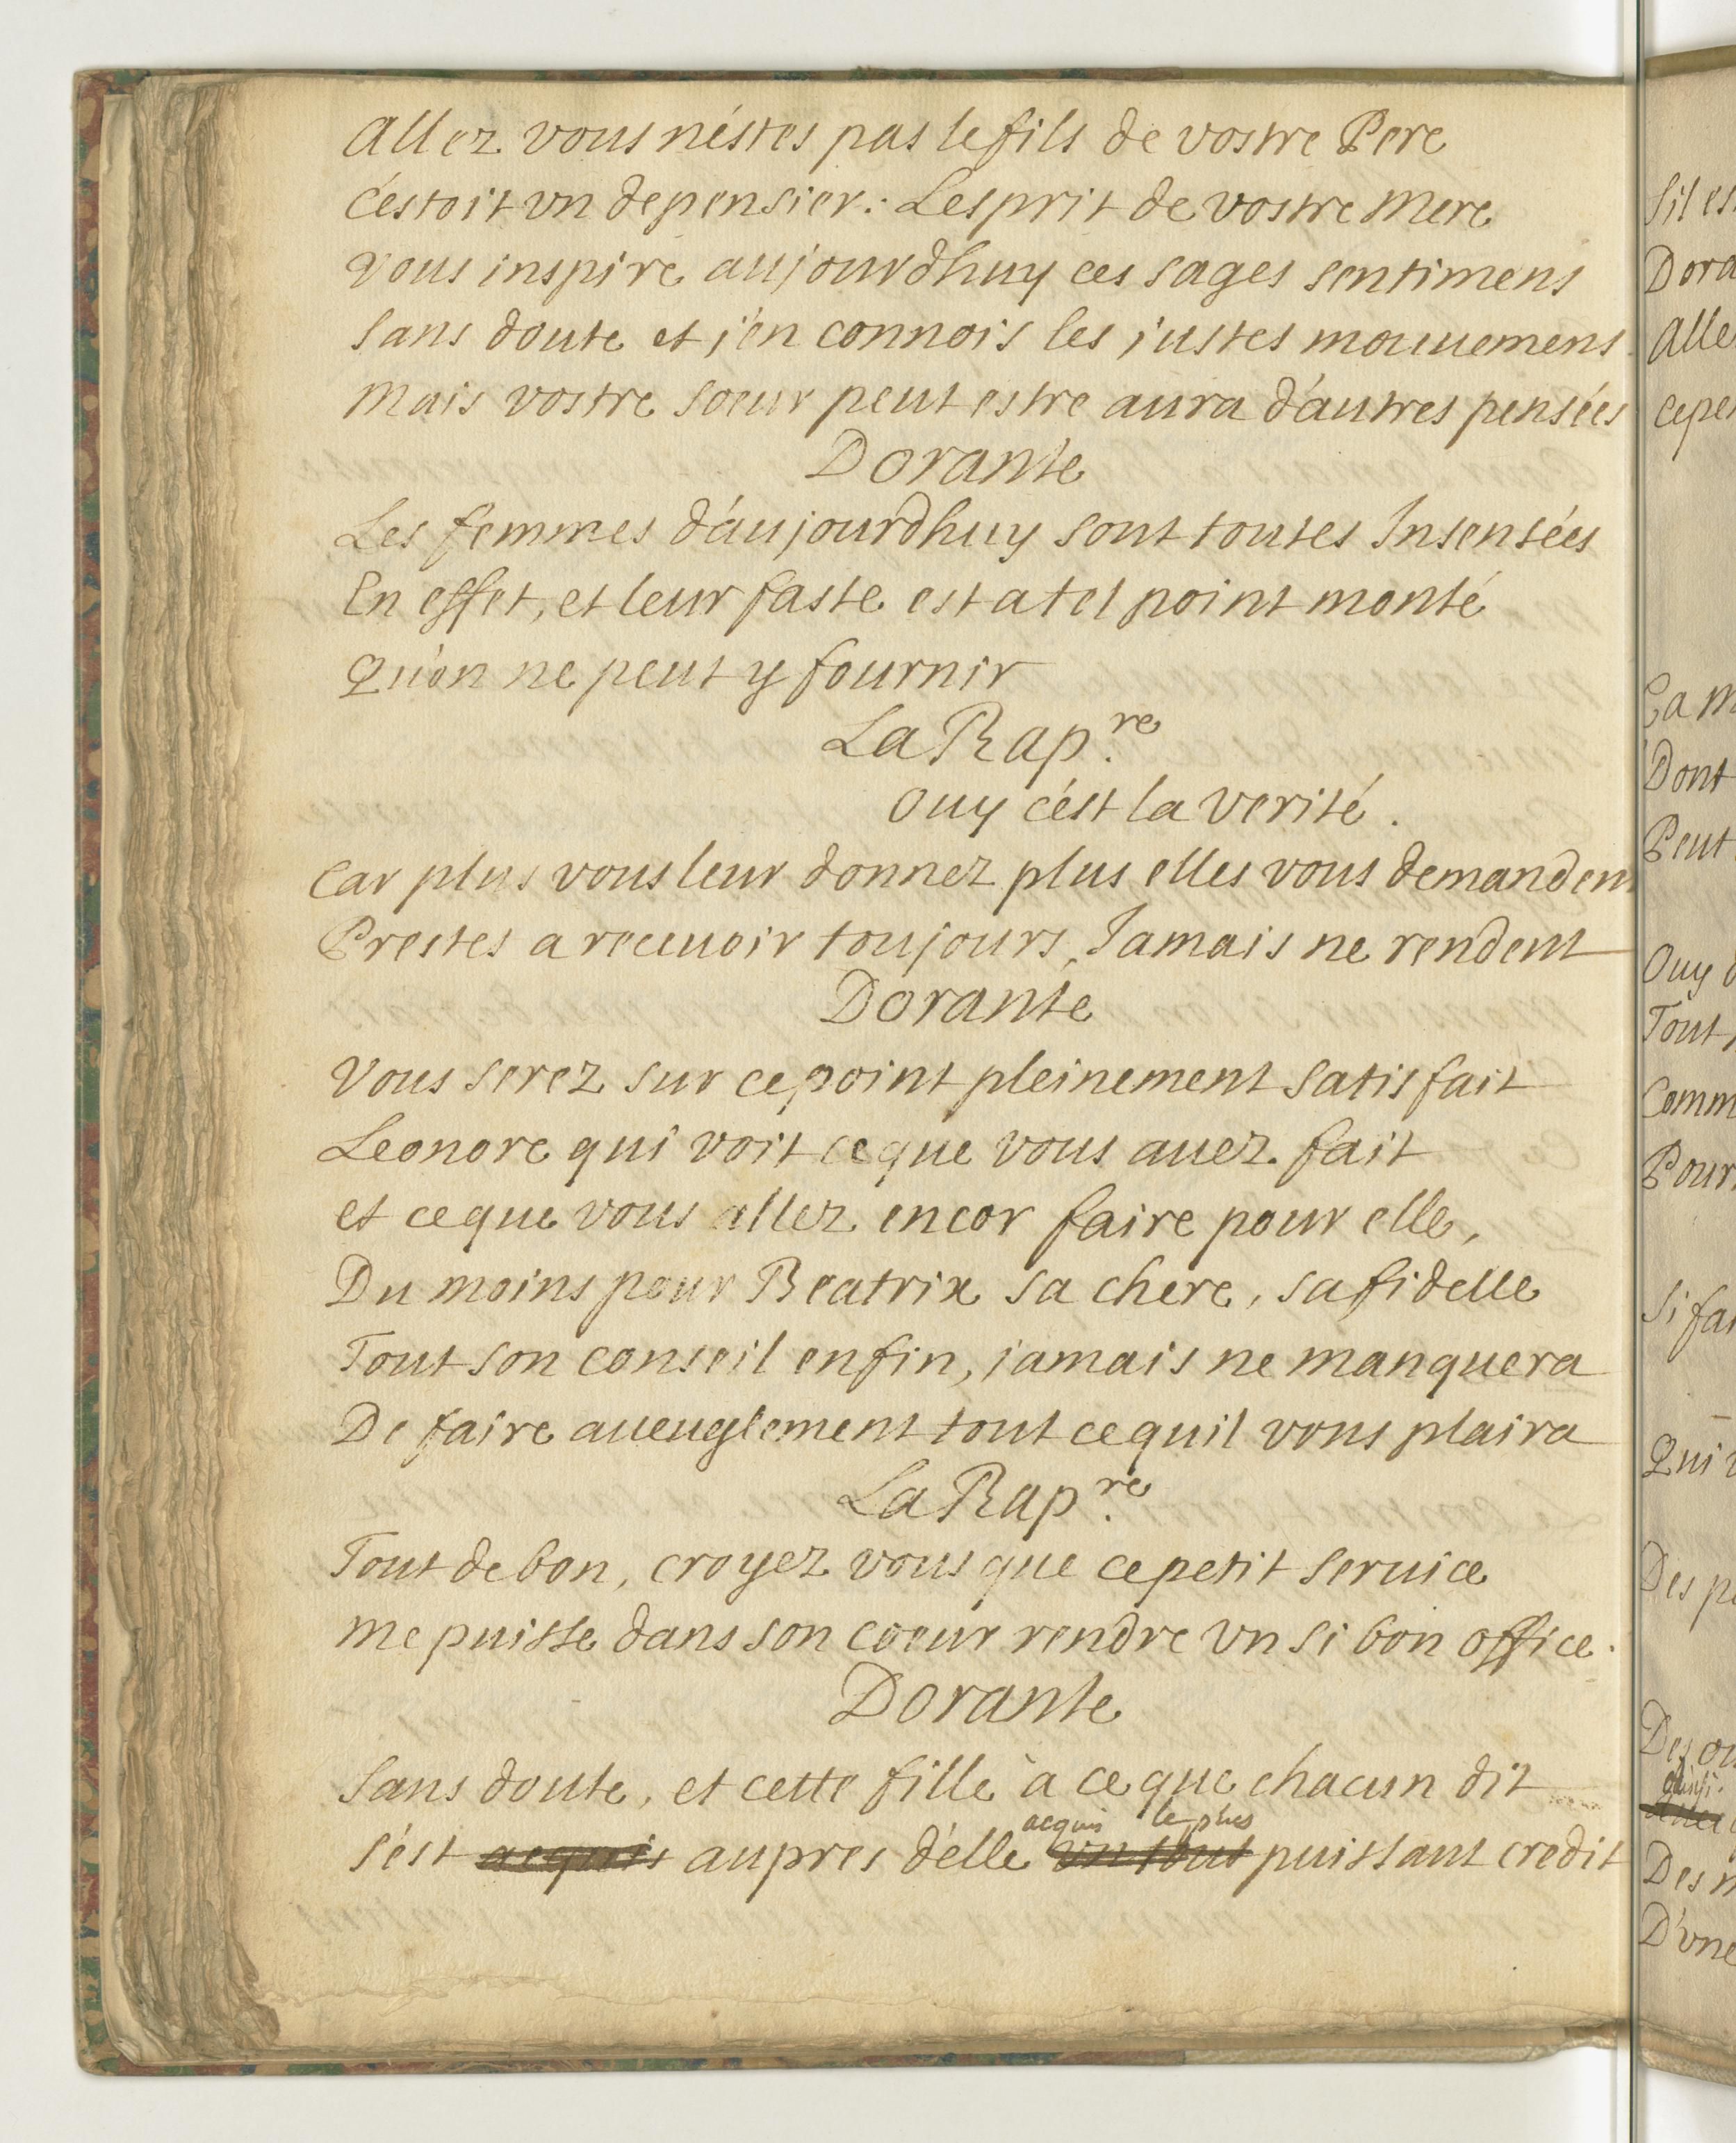 Allez vous n'éstes pas le fils de vostre Pere
C'estoit vn depensier: L'esprit de vostre Mere
Vous inspire aujourdhuy ces sages sentimens
Sans doute et j'en connois les justes mouuemens.
Mais vostre soeur peut estre aura d'autres pensées
Dorante
Les femmes d'aujourdhuy sont toutes Insensées
En effet, et leur faste est a tel point monté
Qu'on ne peut y fournir
La Rap.re
Ouy c'est la verité.
Car plus vous leur donnez plus elles vous demandent
Prestes a receuoir toujours, Jamais ne rendent
Dorante
Vous serez sur ce point pleinement satisfait
Leonore qui voit ce que vous auez fait
et ce que vous allez encor faire pour elle,
Du moins pour Beatrix sa chere, sa fidelle
Tout son conseil enfin, jamais ne manquera
De faire aueuglement tout ce quil vous plaira
La Rap.re
Tout de bon, croyez vous que ce petit seruice
Me puisse dans son coeur rendre vn si bon office.
Dorante
Sans doute, et cette fille à ce que chacun dit
acquis le plus
S'est acquis aupres d'elle vn tout puissant credit
Sil es
Dora
Alle
Cepe
Ça m
Dont
Peut
Ouy d
Tout
Comm
Pour
Si fai
Qui v
Des p
Des ou
ainsi
Des m
D'vne